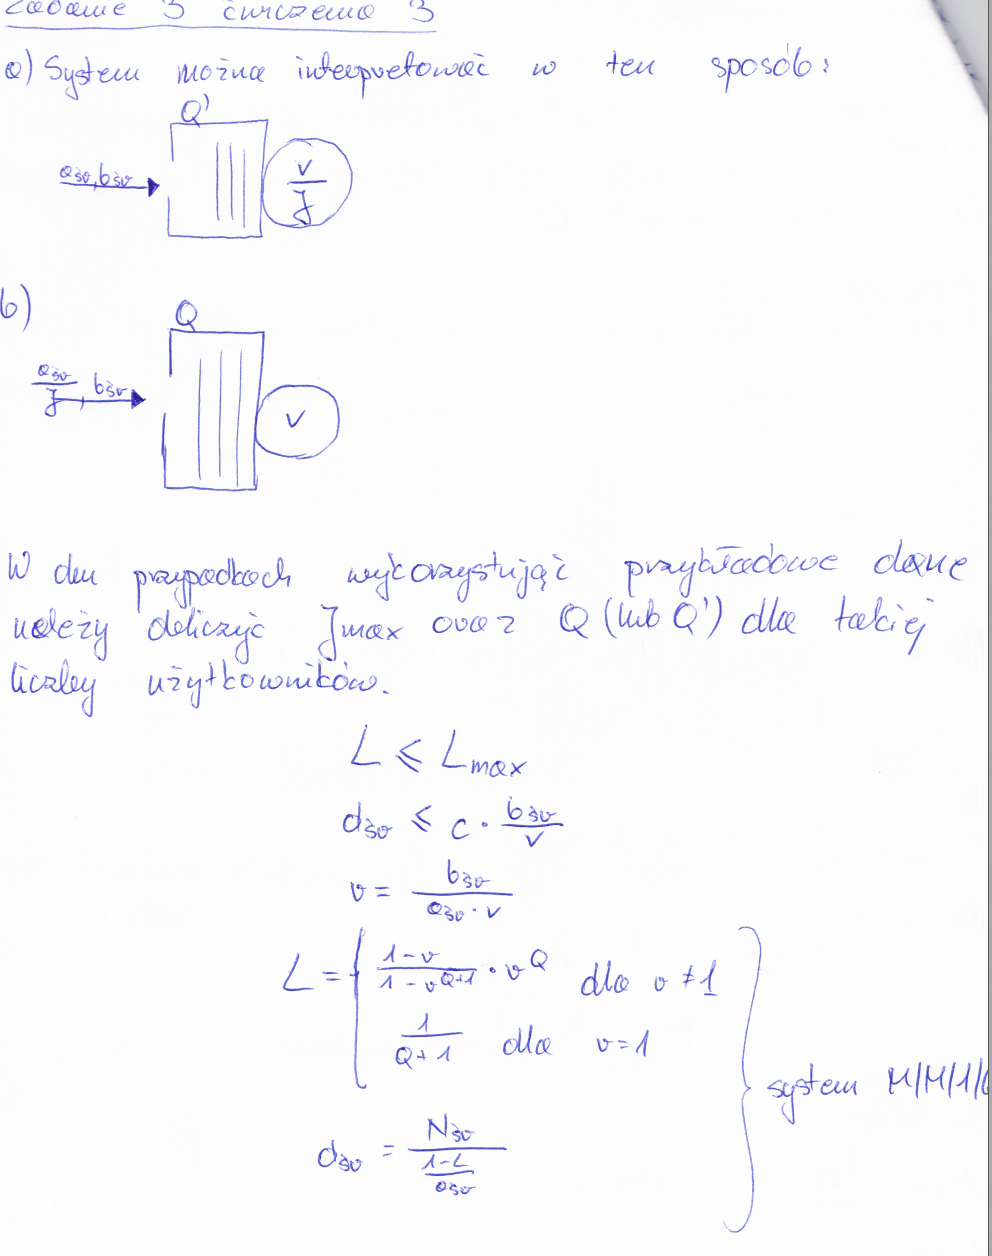 Zadanie 3 ćwiczenia 3
a) System można interpretować w ten sposób:
Q'
aśr, bśr
v/J
b)
Q
aśr/J, bśr
v
W obu przypadkach wykorzystując przykładowe dane
należy obliczyć Jmax oraz Q (lub Q') dla takiej
liczby użytkowników.
L ≤ Lmax
dśr ≤ c · bśr/v
υ = bśr/(aśr · v)
L = { (1-υ)/(1-υ^(Q+1)) · υ^Q dla υ ≠ 1
1/(Q+1) dla υ = 1
system M/M/1/
dśr = Nśr/((1-L)/aśr)